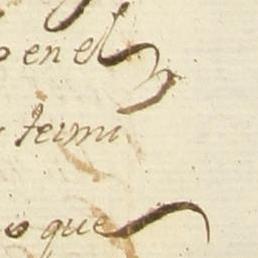 en el
termi
que